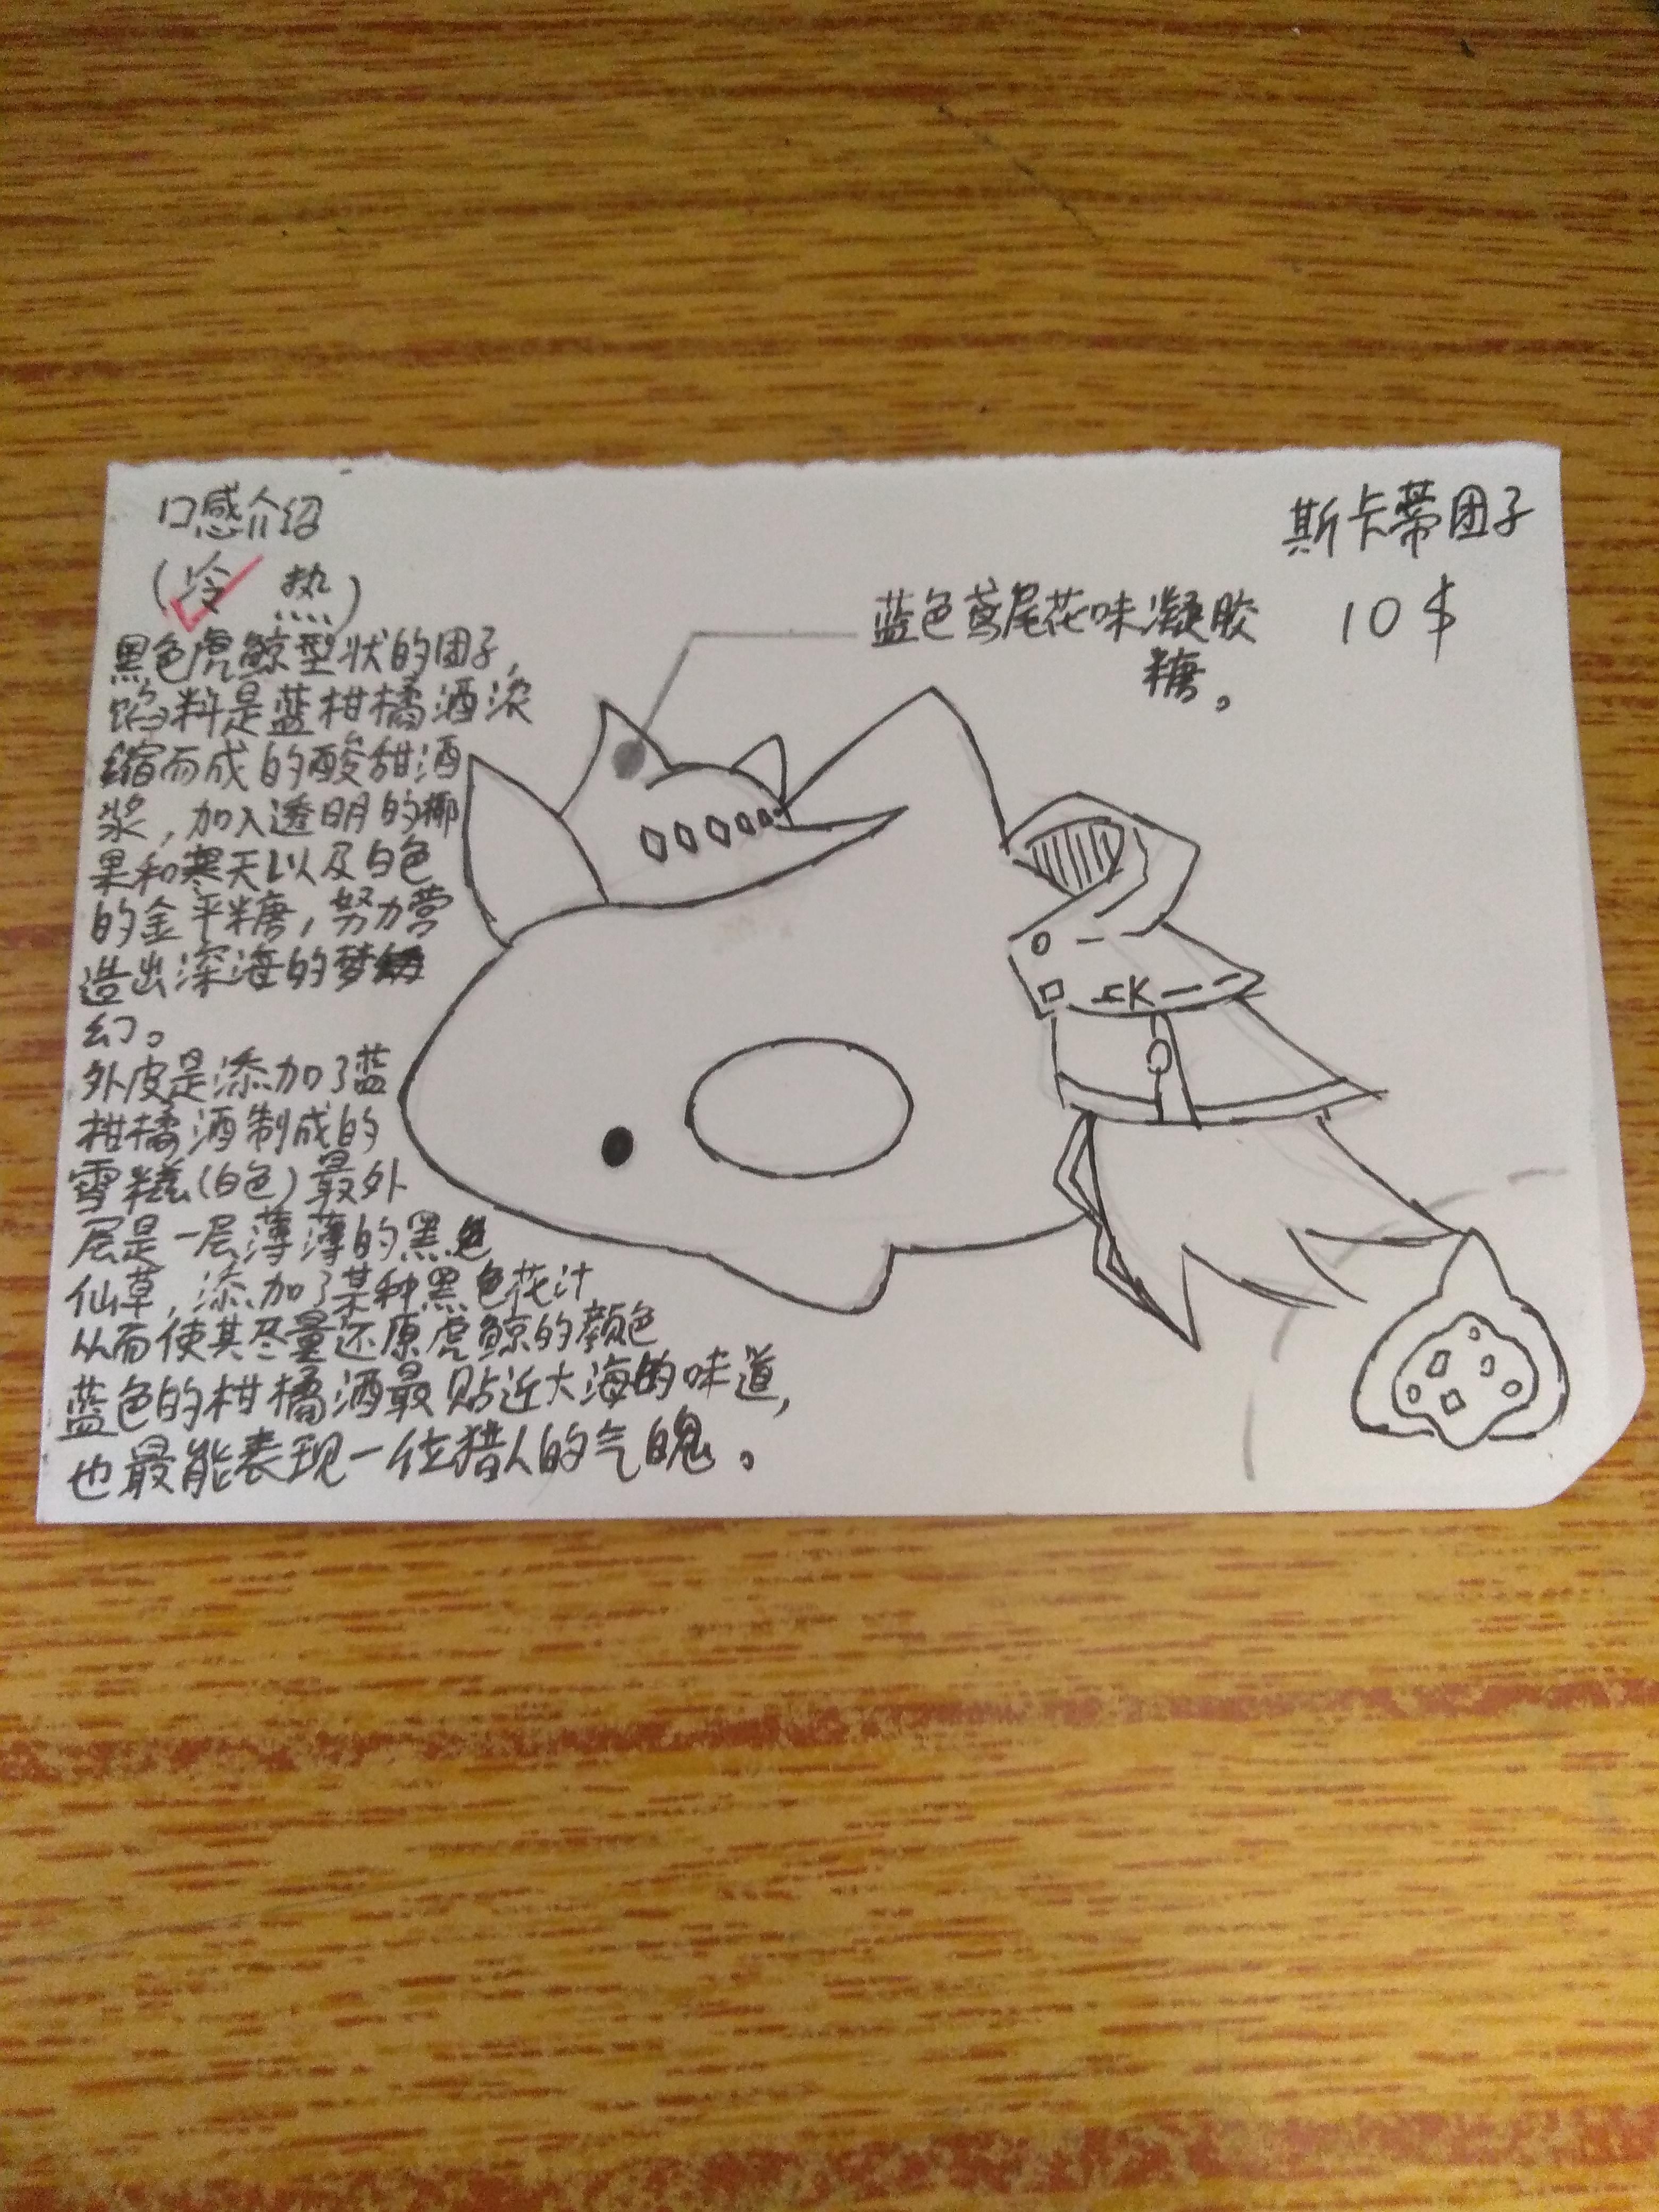 口感介绍
(冷 热)
黑色虎鲸型状的团子,
馅料是蓝柑橘酒浓
缩而成的酸甜酒
浆,加入透明的椰
果和寒天以及白色
的金平糖,努力营
造出深海的梦
幻。
外皮是添加了蓝
柑橘酒制成的
雪糍(白色)最外
层是一层薄薄的黑色
仙草,添加了某种黑色花汁
从而使其尽量还原虎鲸的颜色
蓝色的柑橘酒最贴近大海的味道,
也最能表现一位猎人的气魄。
斯卡蒂团子
10$
蓝色鸢尾花味凝胶
糖。